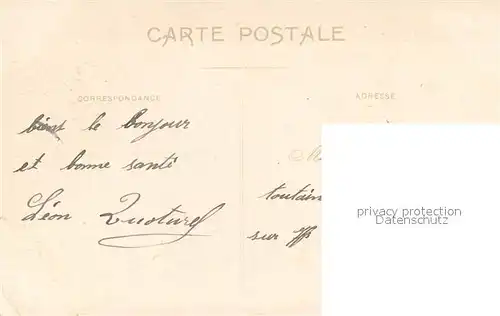 CARTE POSTALE
CORRESPONDANCE
ADRESSE
bien le bonjour
et bonne santé
Léon
toutain
sur
privacy protection
Datenschutz